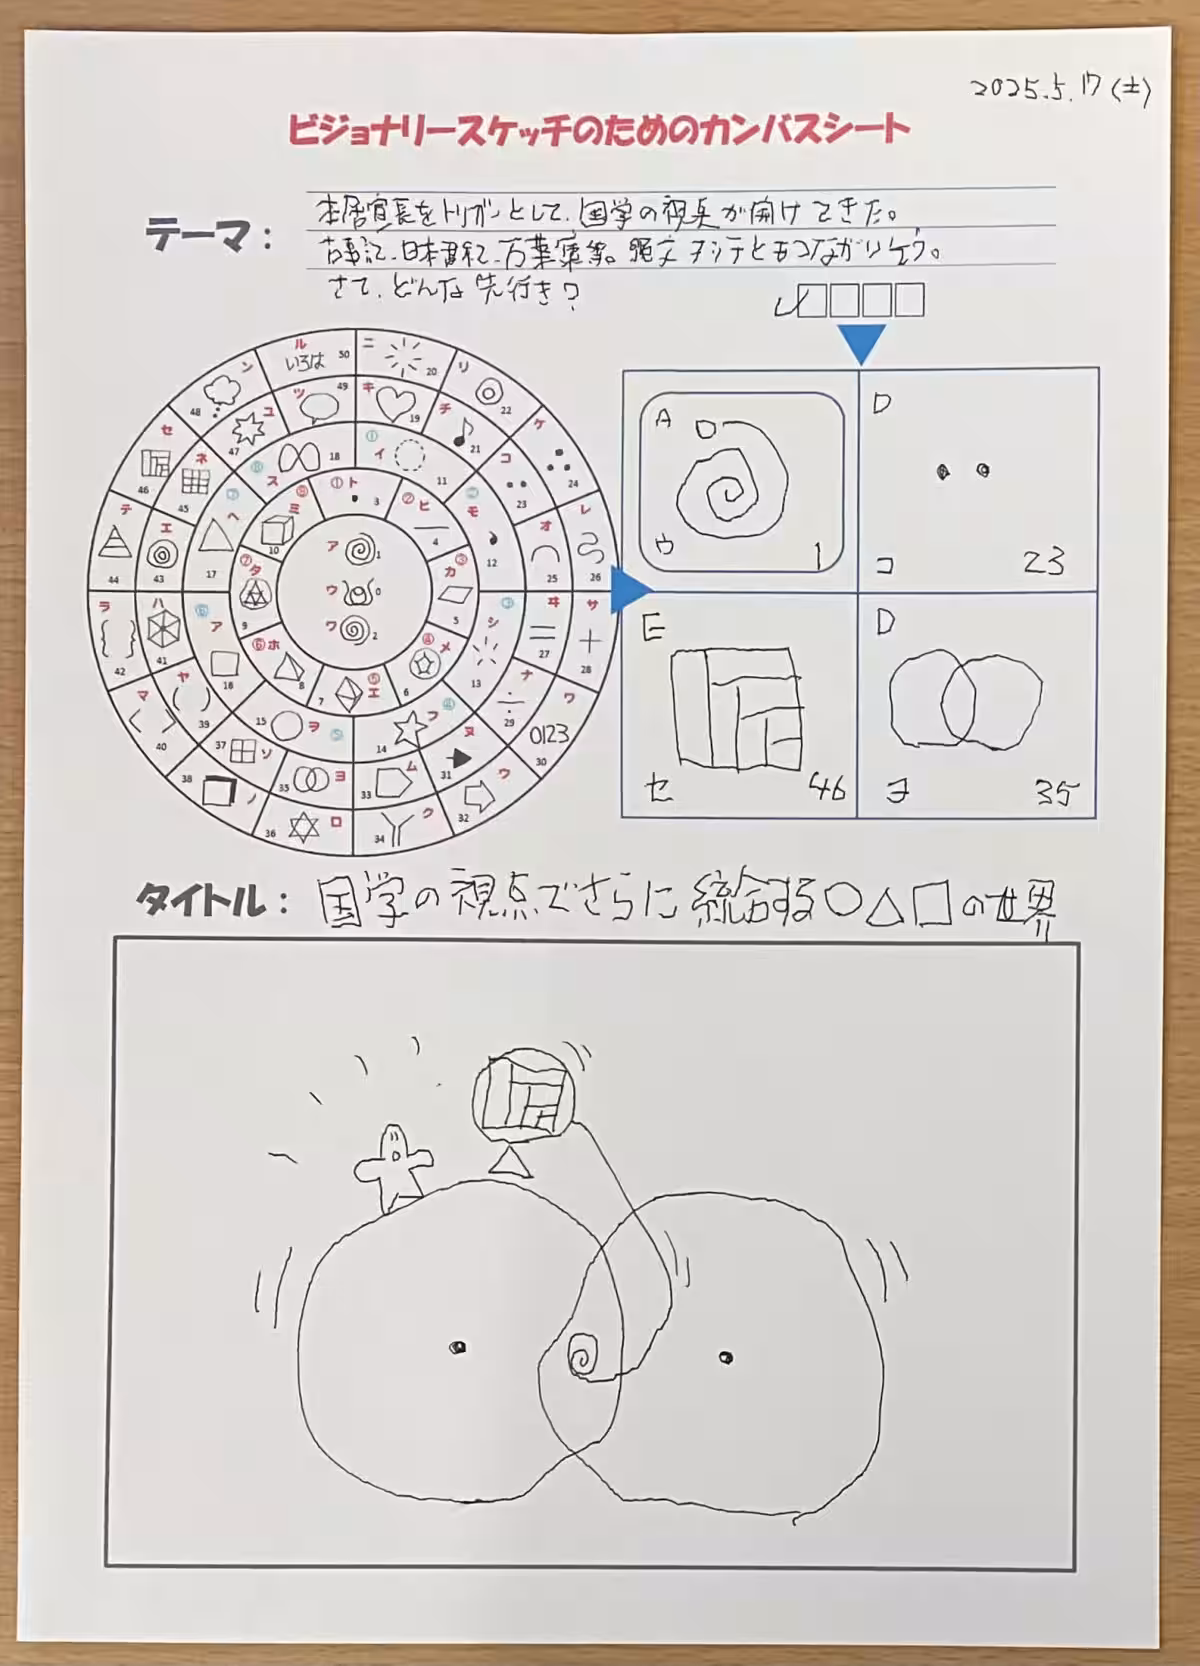 2025.5.17(土)
ビジョナリースケッチのためのカンバスシート
テーマ: 本居宣長をトリガーとして、国学の視点が開けてきた。
古事記、日本書紀、万葉集等。縄文ヲシテともつながりそう。
さて、どんな先行き?
ル いろは 50
ニ 20
リ 22
ケ 24
レ 26
サ 28
ワ 0123 30
ウ 32
ク 34
ロ 36
ノ 38
マ 40
ラ 42
テ 44
セ 46
ン 48
ツ 49
キ 19
チ 21
コ 23
オ 25
ヰ 27
ナ 29
ヌ 31
ム 33
ヨ 35
ソ 37
ヤ 39
ハ 41
エ 43
ネ 45
ユ 47
① イ 11
モ 12
③ シ 13
④ フ 14
⑤ ヲ 15
⑥ ア 16
⑦ ヘ 17
⑧ ス 18
① ト 3
② ヒ 4
③ カ 5
④ メ 6
⑤ エ 7
⑥ ホ 8
⑦ タ 9
⑧ ミ 10
ア 1
ウ 0
ワ 2
A
ウ 1
D
コ 23
E
セ 46
D
ヨ 35
タイトル: 国学の視点でさらに統合する○△□の世界